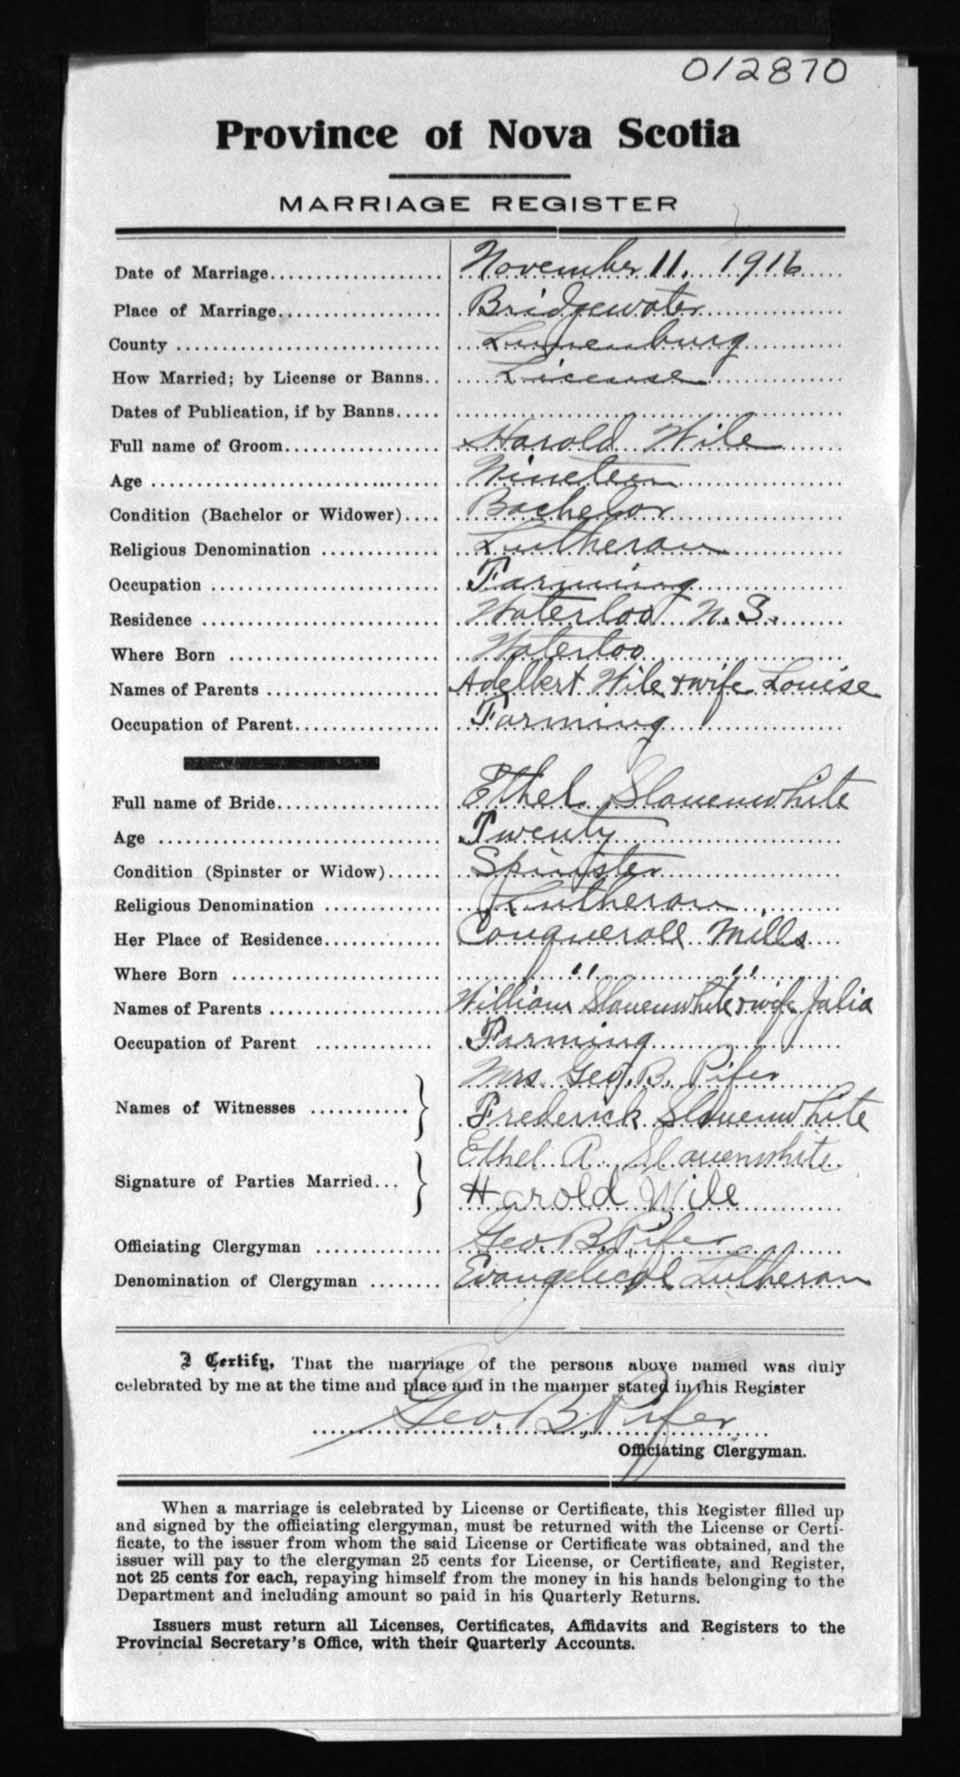 012870
Province of Nova Scotia
MARRIAGE REGISTER
Date of Marriage.................... November 11. 1916
Place of Marriage.................. Bridgewater
County ............................. Lunenburg
How Married; by License or Banns.. License
Dates of Publication, if by Banns.....
Full name of Groom.................. Harold Wile
Age ............................... Nineteen
Condition (Bachelor or Widower).... Bachelor
Religious Denomination ............. Lutheran
Occupation ......................... Farming
Residence .......................... Waterloo N. S.
Where Born ........................ Waterloo
Names of Parents ................... Adelbert Wile & wife Louise
Occupation of Parent................ Farming
Full name of Bride.................. Ethel Slauenwhite
Age ............................... Twenty
Condition (Spinster or Widow)...... Spinster
Religious Denomination ............. Lutheran
Her Place of Residence............. Conquerall Mills
Where Born ........................ " "
Names of Parents ................... William Slauenwhite & wife Julia
Occupation of Parent ............. Farming
Mrs. Geo. B. Pifer
Names of Witnesses ........... } Frederick Slauenwhite
Ethel A. Slauenwhite
Signature of Parties Married... } Harold Wile
Officiating Clergyman .............. Geo. B. Pifer
Denomination of Clergyman ........ Evangelical Lutheran
I Certify, That the marriage of the persons above named was duly
celebrated by me at the time and place and in the manner stated in this Register
Geo. B. Pifer
Officiating Clergyman.
When a marriage is celebrated by License or Certificate, this Register filled up
and signed by the officiating clergyman, must be returned with the License or Certi-
ficate, to the issuer from whom the said License or Certificate was obtained, and the
issuer will pay to the clergyman 25 cents for License, or Certificate, and Register,
not 25 cents for each, repaying himself from the money in his hands belonging to the
Department and including amount so paid in his Quarterly Returns.
Issuers must return all Licenses, Certificates, Affidavits and Registers to the
Provincial Secretary's Office, with their Quarterly Accounts.